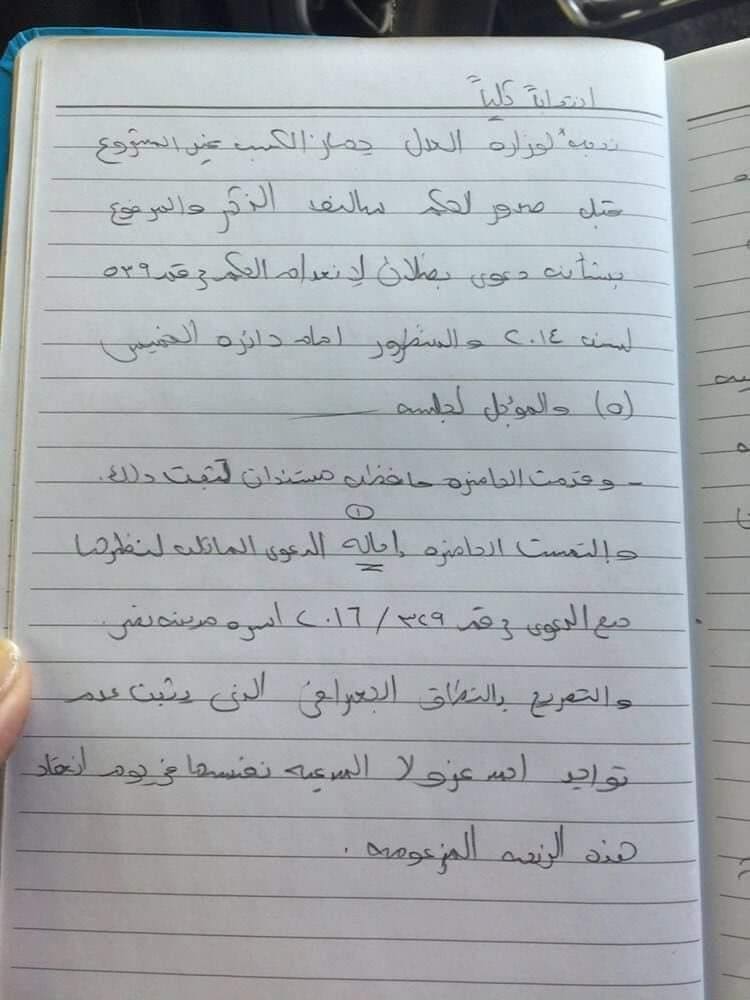 انتداباً كلياً
ندبه لوزارة العدل جهاز الكسب غير المشروع
قبل صدور لحكم سالف الذكر والمرفوع
بشأنه دعوى بطلان لإنعدام الحكم رقم ٥٣٩
لسنه ٢٠١٤ والمنظور امام دائرة الخميس
(٥) والموجل لجلسه
- وقدمت الحاضره حافظه مستندات تثبت ذلك.
١
والتمست الحاضره إحاله الدعوى الماثله لنظرها
مع الدعوى رقم ٣٢٩ / ٢٠١٦ اسره مدينه نصر.
والتصريح بالنطاق الجغرافى الذى يثبت عدم
تواجد احمد عز ولا المدعيه نفسها فى يوم انعقاد
هذه الزيجه المزعومه.